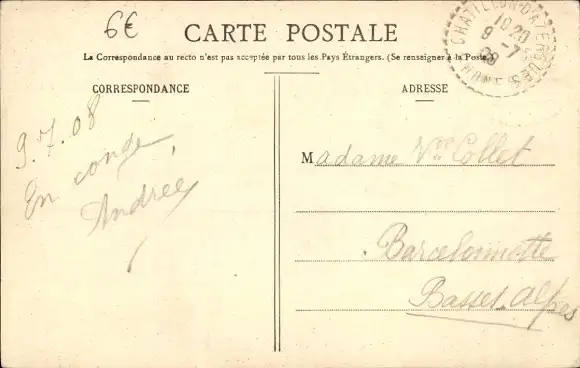 6€
CARTE POSTALE
La Correspondance au recto n'est pas acceptée par tous les Pays Étrangers. (Se renseigner à la Poste.)
CORRESPONDANCE
ADRESSE
CHATILLON-D'AZERGUES
RHONE
18 20
9 -7
08
9.7.08
En congé,
Andrée
Madame Vve Collet
Barcelonnette
Basses-Alpes